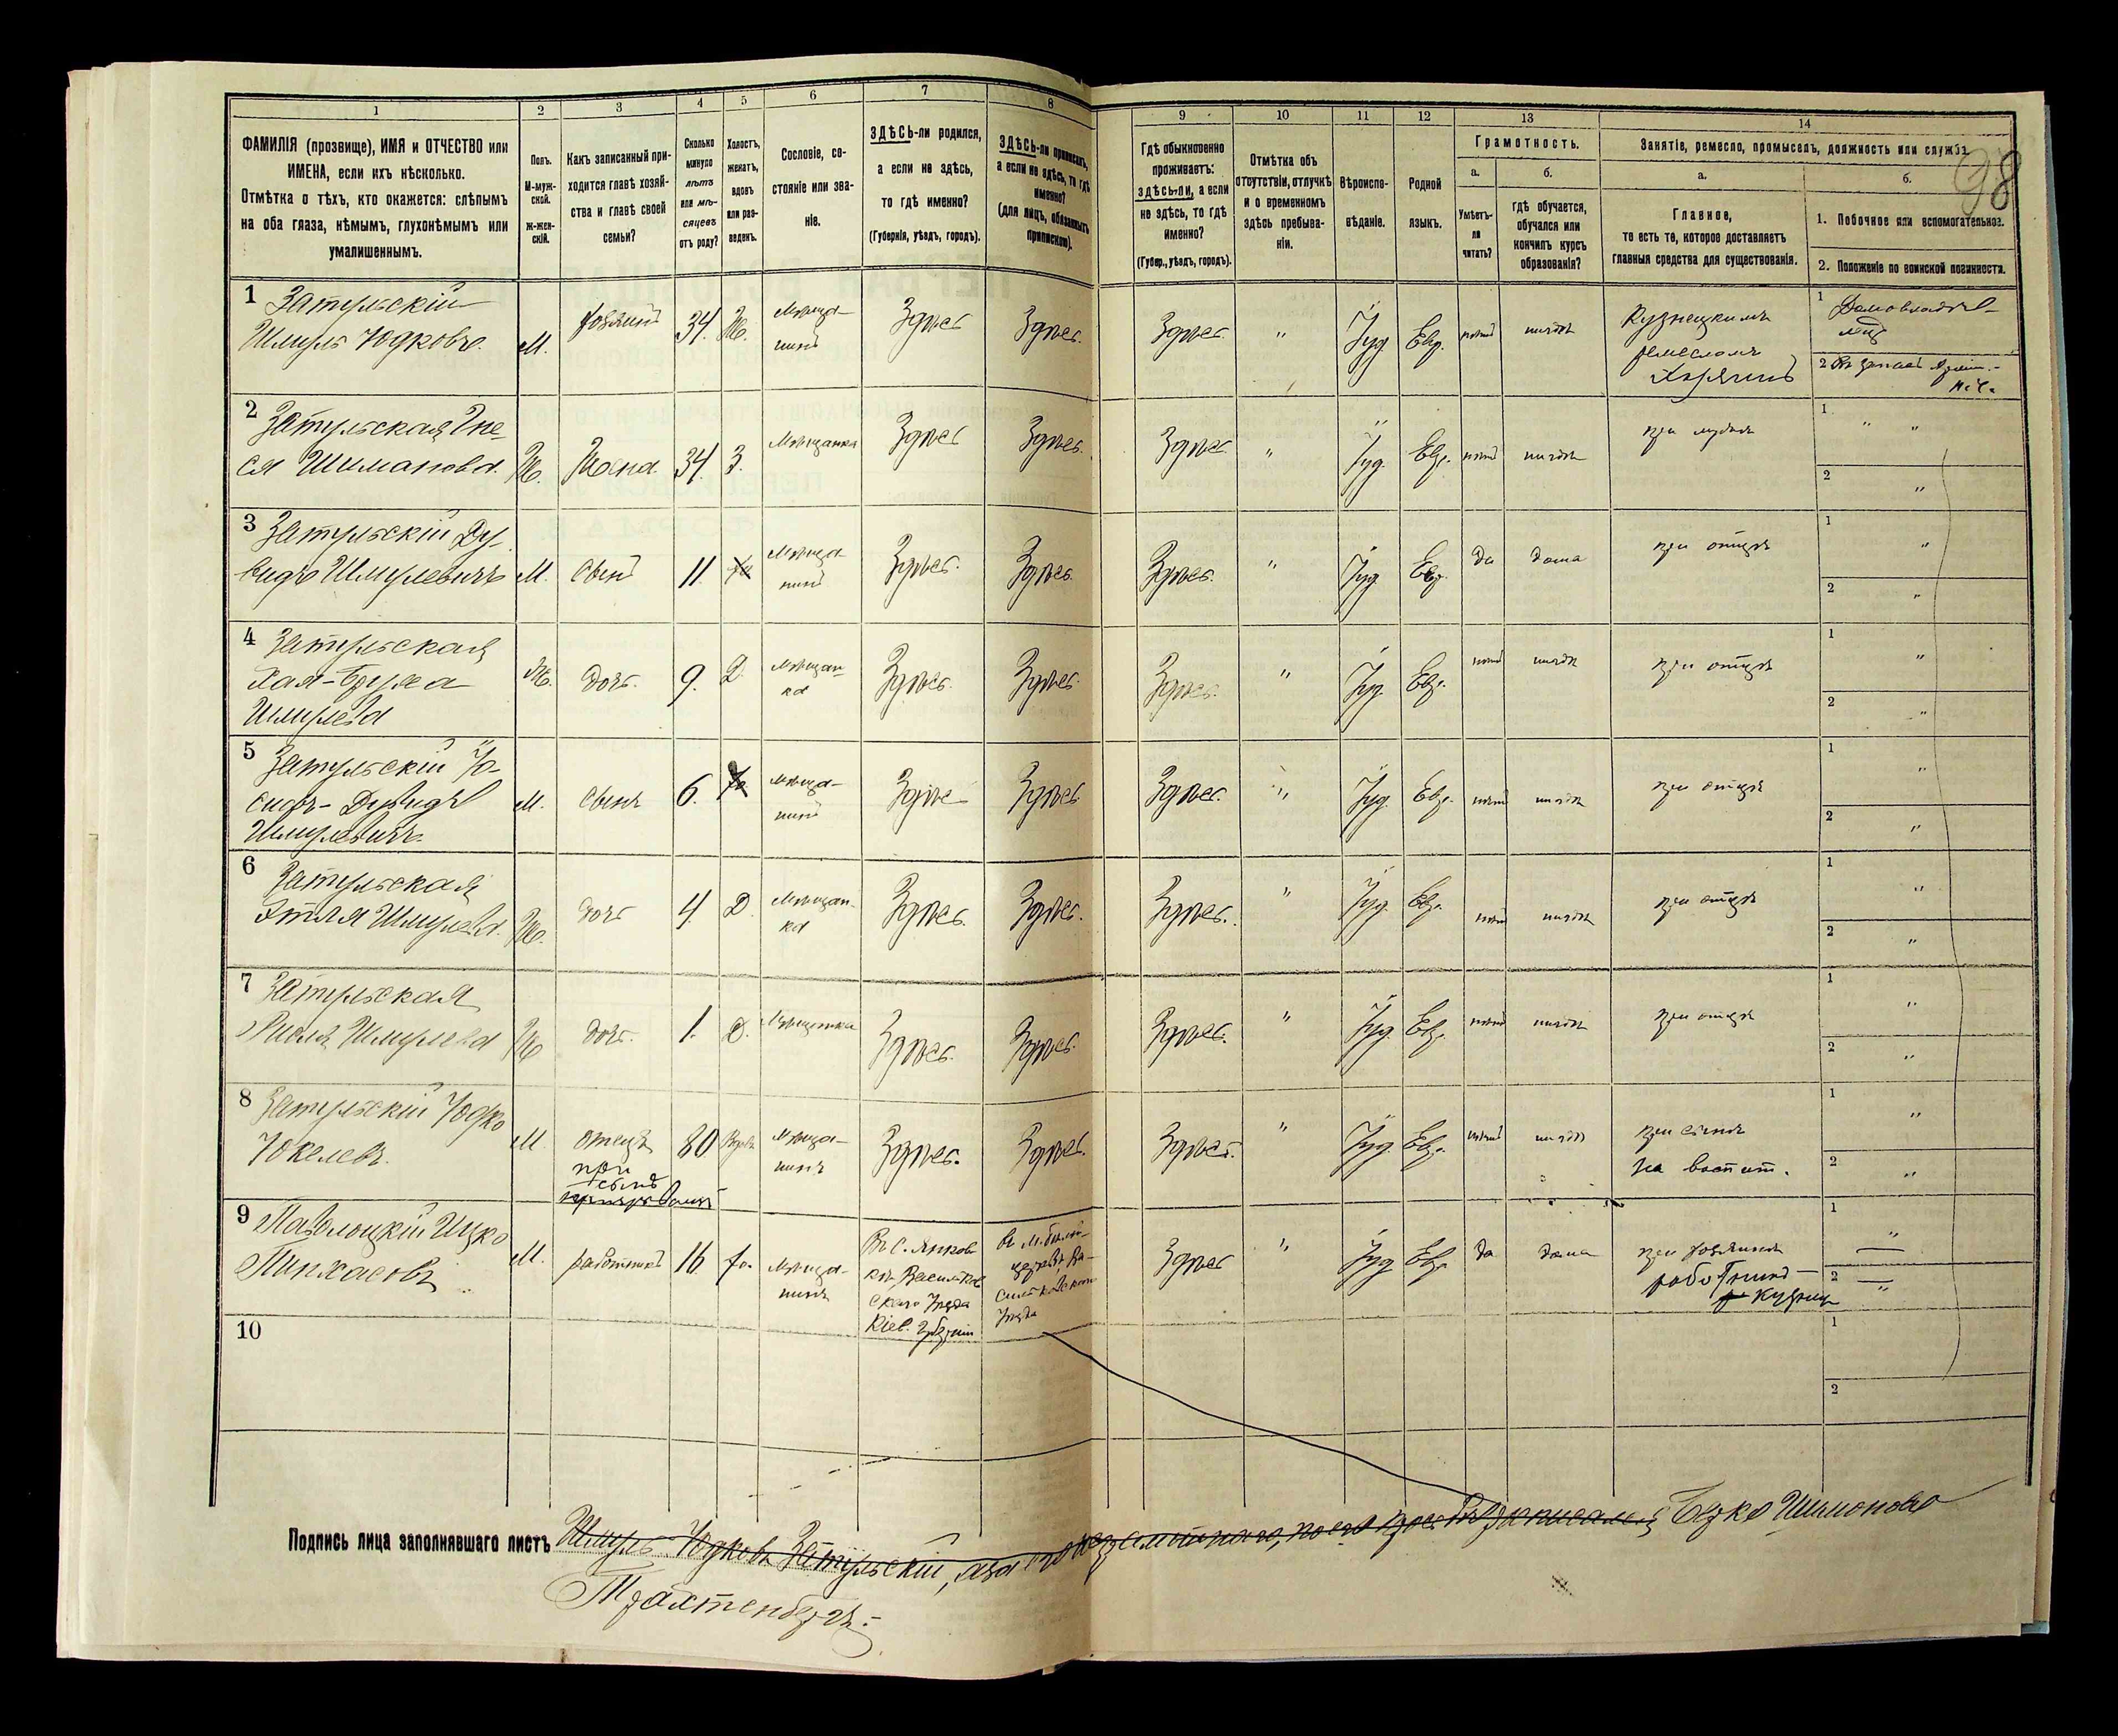 1 2 3 4 5 6 7 8 9 10 11 12 13 14
ФАМИЛІЯ (прозвище), ИМЯ и ОТЧЕСТВО или
ИМЕНА, если ихъ нѣсколько.
Отмѣтка о тѣхъ, кто окажется: слѣпымъ
на оба глаза, нѣмымъ, глухонѣмымъ или
умалишеннымъ.
Полъ.
М-муж-
ской.
Ж-жен-
скій.
Какъ записанный при-
ходится главѣ хозяй-
ства и главѣ своей
семьи?
Сколько
минуло
лѣтъ
или мѣ-
сяцевъ
отъ роду?
Холостъ,
женатъ,
вдовъ
или раз-
веденъ.
Сословіе, со-
стояніе или зва-
ніе.
ЗДѢСЬ-ли родился,
а если не здѣсь,
то гдѣ именно?
(Губернія, уѣздъ, городъ).
ЗДѢСЬ-ли приписанъ,
а если не здѣсь, то гдѣ
именно?
(для лицъ, обязанныхъ
припискою).
Гдѣ обыкновенно
проживаетъ:
здѣсь-ли, а если
не здѣсь, то гдѣ
именно?
(Губер., уѣздъ, городъ).
Отмѣтка объ
отсутствіи, отлучкѣ
и о временномъ
здѣсь пребыва-
ніи.
Вѣроиспо-
вѣданіе.
Родной
языкъ.
Грамотность.
а.
Умѣетъ-
ли
читать?
б.
гдѣ обучается,
обучался или
кончилъ курсъ
образованія?
Занятіе, ремесло, промыселъ, должность или служба.
98
а.
Главное,
то есть то, которое доставляетъ
главныя средства для существованія.
б.
1. Побочное или вспомогательное.
2. Положеніе по воинской повинности.
1 Затульскій
Шмуль Юдковъ.
М.
хозяинъ
34
Ж.
мѣща-
нинъ
Здѣсь
Здѣсь.
Здѣсь.
"
Іуд.
Евр.
нѣтъ
нигдѣ
Кузнецкимъ
ремесломъ
хозяинъ
1 Домовладѣ-
лецъ
2
2 Затульская
Шиманова.
Ж.
Жена.
34
З.
Мѣщанка
Здѣсь
Здѣсь.
Здѣсь
"
Іуд.
Евр.
нѣтъ
нигдѣ
при мужѣ
1 " "
2 "
3 Затульскій Ду-
видъ Шмулевичъ
М.
сынъ
11.
мѣща-
нинъ
Здѣсь.
Здѣсь.
Здѣсь.
"
Іуд.
Евр.
да
дома
при отцѣ
1 "
2 "
4 Затульская
Хая-Бруха
Шмулева
Ж.
дочь.
9.
Д.
мѣщан-
ка
Здѣсь.
Здѣсь.
Здѣсь.
"
Іуд.
Евр.
нѣтъ
нигдѣ
при отцѣ
1 "
2 "
5 Затульскій Іо-
сифъ-Дувидъ
Шмулевичъ.
М.
сынъ
6.
мѣща-
нинъ
Здѣсь
Здѣсь
Здѣсь.
"
Іуд.
Евр.
нѣтъ
нигдѣ
при отцѣ
1 "
2 "
6 Затульская
Этля Шмулева.
Ж.
дочь
4.
Д
мѣщан-
ка
Здѣсь.
Здѣсь.
Здѣсь.
"
Іуд.
Евр.
нѣтъ
нигдѣ
при отцѣ
1 "
2 "
7 Затульская
Шмулева
Ж
дочь.
1.
Д.
Мѣщанка
Здѣсь.
Здѣсь.
Здѣсь.
"
Іуд.
Евр.
нѣтъ
нигдѣ
при отцѣ
1 "
2 "
8 Затульскій Юдко
Юкелевъ.
М.
отецъ
при
сынѣ
80
Вдовъ
мѣща-
нинъ
Здѣсь.
Здѣсь.
Здѣсь.
"
Іуд.
Евр.
нѣтъ
нигдѣ
при сынѣ
1 "
2 "
9 Паволоцкій Ицко
Пинхасовъ
М.
работникъ
16
х.
мѣща-
нинъ
Васильков
скаго уѣзда
Кіев. Губерніи
въ м. Бѣлой-
церкви Ва-
сильковскаго
уѣзда
Здѣсь
"
Іуд
Евр.
да
дома
при хозяинѣ
работникъ
кузнецъ
1 "
2 "
10
1
2
Подпись лица заполнявшаго листъ Шмуль Юдковъ Затульскій, а за его неграмотнаго, по его просьбѣ Берко Шимоновъ
Трахтенбергъ.